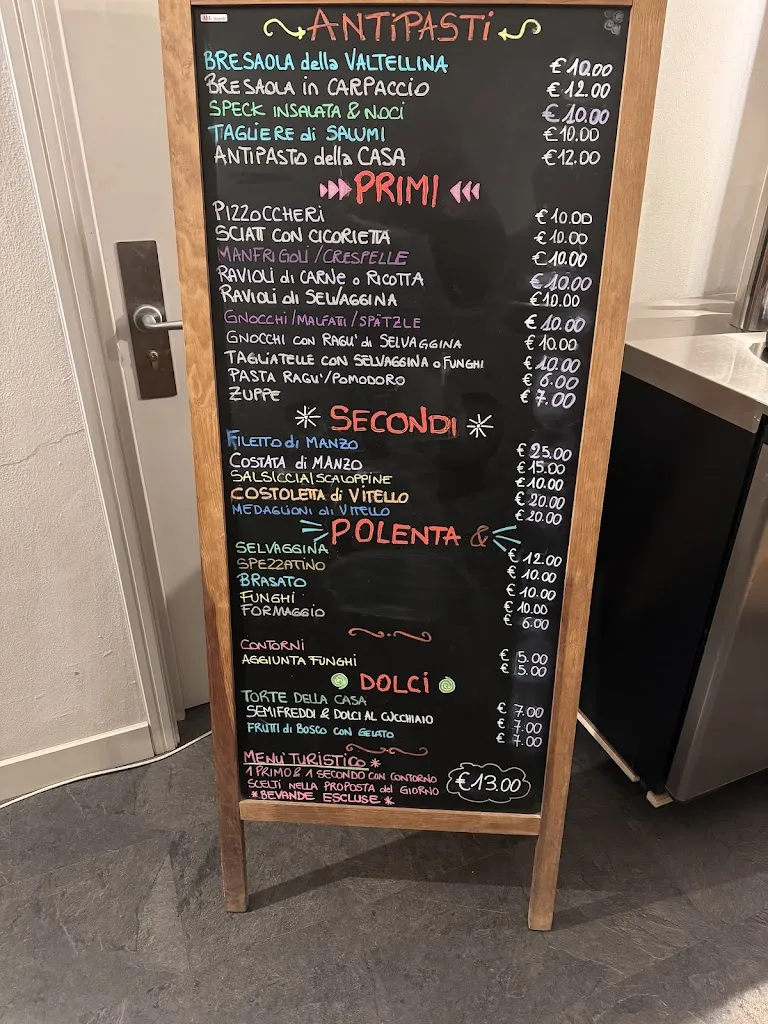 ANTIPASTI
BRESAOLA della VALTELLINA € 10.00
BRESAOLA in CARPACCIO € 12.00
SPECK INSALATA & NOCI € 10.00
TAGLIERE di SALUMI € 10.00
ANTIPASTO della CASA € 12.00
PRIMI
PIZZOCCHERI € 10.00
SCIATT CON CICORIETTA € 10.00
MANFRIGOLI / CRESPELLE € 10.00
RAVIOLI di CARNE o RICOTTA € 10.00
RAVIOLI di SELVAGGINA € 10.00
GNOCCHI / MALFATTI / SPÄTZLE € 10.00
GNOCCHI CON RAGU' di SELVAGGINA € 10.00
TAGLIATELLE CON SELVAGGINA o FUNGHI € 10.00
PASTA RAGU' / POMODORO € 6.00
ZUPPE € 7.00
SECONDI
FILETTO di MANZO € 25.00
COSTATA di MANZO € 15.00
SALSICCIA / SCALOPPINE € 10.00
COSTOLETTA di VITELLO € 20.00
MEDAGLIONI di VITELLO € 20.00
POLENTA &
SELVAGGINA € 12.00
SPEZZATINO € 10.00
BRASATO € 10.00
FUNGHI € 10.00
FORMAGGIO € 6.00
CONTORNI € 5.00
AGGIUNTA FUNGHI € 5.00
DOLCI
TORTE DELLA CASA € 7.00
SEMIFREDDI & DOLCI AL CUCCHIAIO € 7.00
FRUTTI di BOSCO CON GELATO € 7.00
MENU' TURISTICO *
1 PRIMO & 1 SECONDO CON CONTORNO
SCELTI NELLA PROPOSTA del GIORNO
* BEVANDE ESCLUSE *
€ 13.00